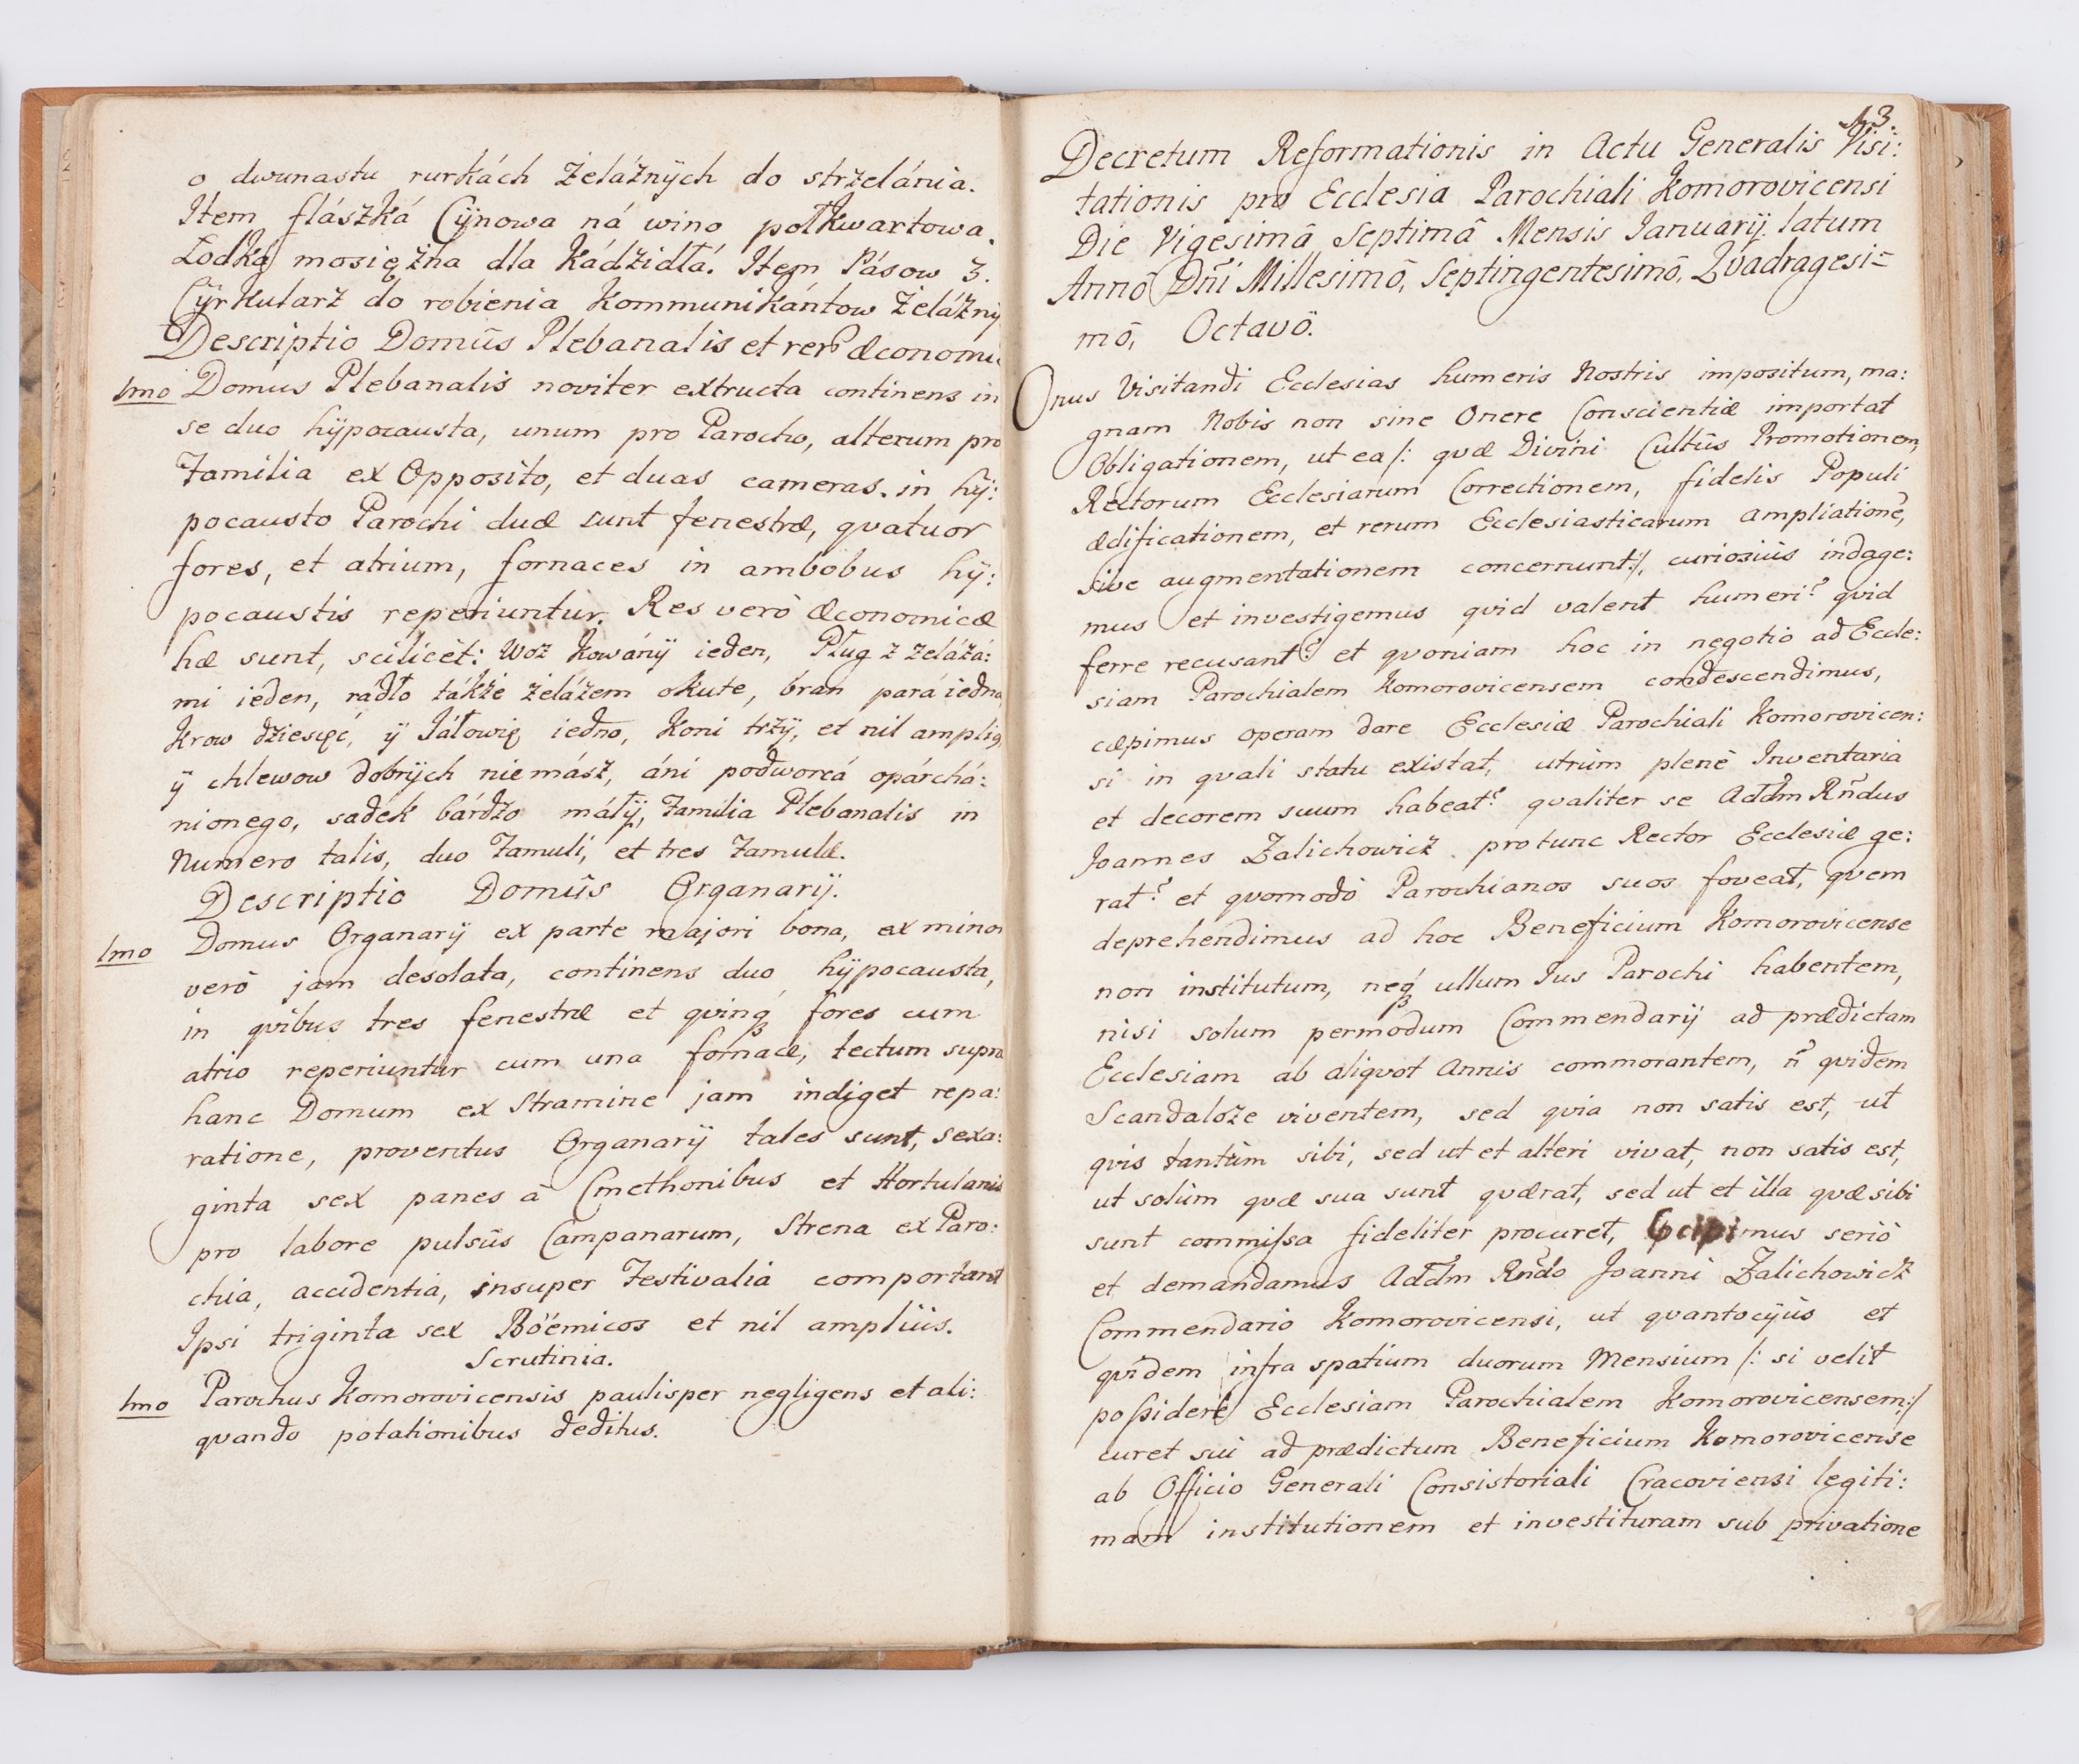 o dwunastu rurkách żeláżnÿch do strzelánia.
Item flászká Cÿnowa ná wino połkwartowa.
Łodka mosiężna dla Kádźidłá. Item Pásow 3.
Cÿrkularz do robienia Kommunikántow żeláźnÿ
Descriptio Domûs Plebanalis et rerũ œconomi
1mo Domus Plebanalis noviter extructa continens in
se duo hÿpocausta, unum pro Parocho, alterum pro
Familia ex Opposito, et duas cameras. in hÿ:
pocausto Parochi duæ sunt fenestræ, qvatuor
fores, et atrium, fornaces in ambobus hÿ:
pocaustis reperiuntur. Res verò œconomicæ
hæ sunt, scilicèt: Woz Kowánÿ ieden, Pług z żelázá:
mi ieden, rádło tákże żelázem okute, bran pará iedna
Krow dźiesięć, ÿ Jáłowię iedno, Koni trzÿ, et nil amplig
ÿ chlewow dobrÿch niemász, áni podworcá opárchá:
nionego, sadek bárdzo máłÿ, Familia Plebanalis in
Numero talis, duo Famuli, et tres Famulæ.
Descriptio Domûs Organarÿ.
1mo Domus Organarÿ ex parte majori bona, ex minor
verò jam desolata, continens duo hÿpocausta,
in qvibus tres fenestræ et qvinqꝫ fores cum
atrio reperiuntur cum una fornace, tectum supra
hanc Domum ex Stramine jam indiget repa:
ratione, proventus Organarÿ tales sunt, sexa:
ginta sex panes à Cmethonibus et Hortulanis
pro labore pulsûs Campanarum, Strena ex Paro:
chia, accidentia, insuper Festivalia comportant
Ipsi triginta sex Böëmicos et nil ampliùs.
Scrutinia.
1mo Parochus Komorovicensis paulisper negligens et ali:
quando potationibus deditus.
13.
Decretum Reformationis in Actu Generalis Visi:
tationis pro Ecclesia Parochiali Komorovicensi
Die Vigesimâ Septimâ Mensis Ianuarÿ latum
Annô Dñi Millesimô, Septingentesimô, Qvadragesi=
mô, Octavô.
Onus Visitandi Ecclesias humeris Nostris impositum, ma:
gnam Nobis non sine Onere Conscientiæ importat
Obligationem, ut ea /: qvæ Divini Cultûs Promotionem,
Rectorum Ecclesiarum Correctionem, fidelis Populi
ædificationem, et rerum Ecclesiasticarum ampliationẽ,
sive augmentationem concernunt :/, curiosiùs indage:
mus et investigemus qvid valent humeri? qvid
ferre recusant? et qvoniam hoc in negotio ad Eccle:
siam Parochialem Komorovicensem condescendimus,
cæpimus operam dare Ecclesiæ Parochiali Komorovicen:
si in qvali statu existat, utrùm plenè Inventaria
et decorem suum habeat? qvaliter se Addm Rñdus
Joannes Zalichowicz protunc Rector Ecclesiæ ge:
rat? et qvomodò Parochianos suos foveat, qvem
deprehendimus ad hoc Beneficium Komorovicense
non institutum, neqꝫ ullum Ius Parochi habentem,
nisi solum permodum Commendarÿ ad prædictam
Ecclesiam ab aliqvot Annis commorantem, ñ qvidem
Scandaloze viventem, sed qvia non satis est, ut
qvis tantùm sibi, sed ut et alteri vivat, non satis est,
ut solùm qvæ sua sunt qværat, sed ut et illa qvæ sibi
sunt commissa fideliter procuret, cipimus seriò
et demandamus Addm Rñdo Joanni Zalichowicz
Commendario Komorovicensi, ut qvantocÿùs et
qvidem infra spatium duorum Mensium /: si velit
possidere Ecclesiam Parochialem Komorovicensem :/
curet sui ad prædictum Beneficium Komorovicense
ab Officio Generali Consistoriali Cracoviensi legiti:
mam institutionem et investituram sub privatione